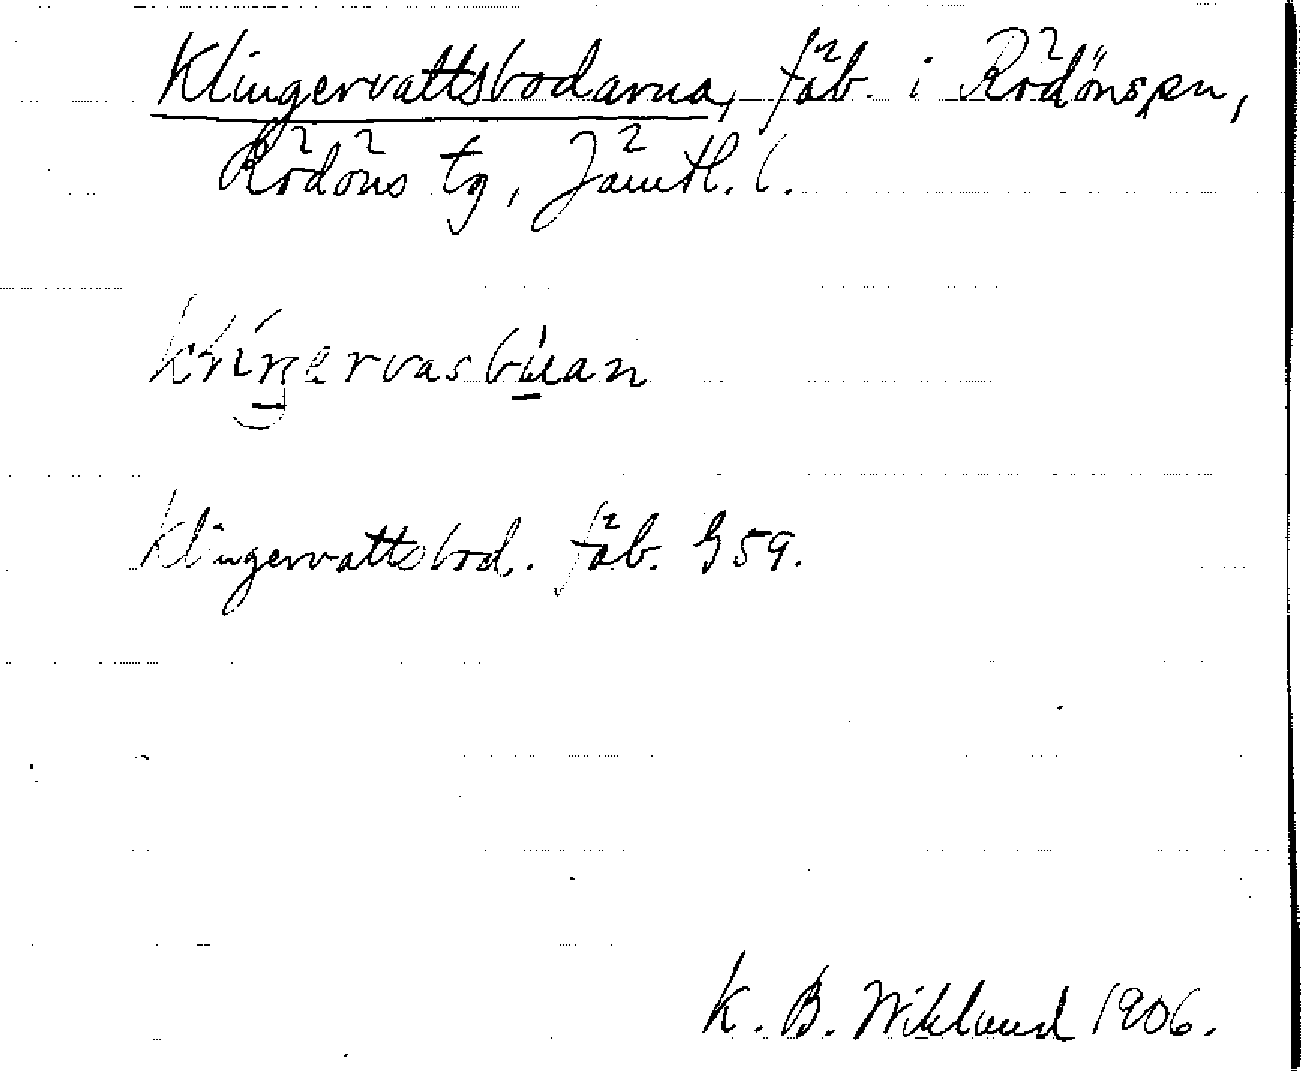 Klingervattsbodarna, fäb. i Rödöns sn,
Rödöns tg, Jämtl. l.
Klingervattsbod. fäb. G 59.
K. B. Wiklund 1906.